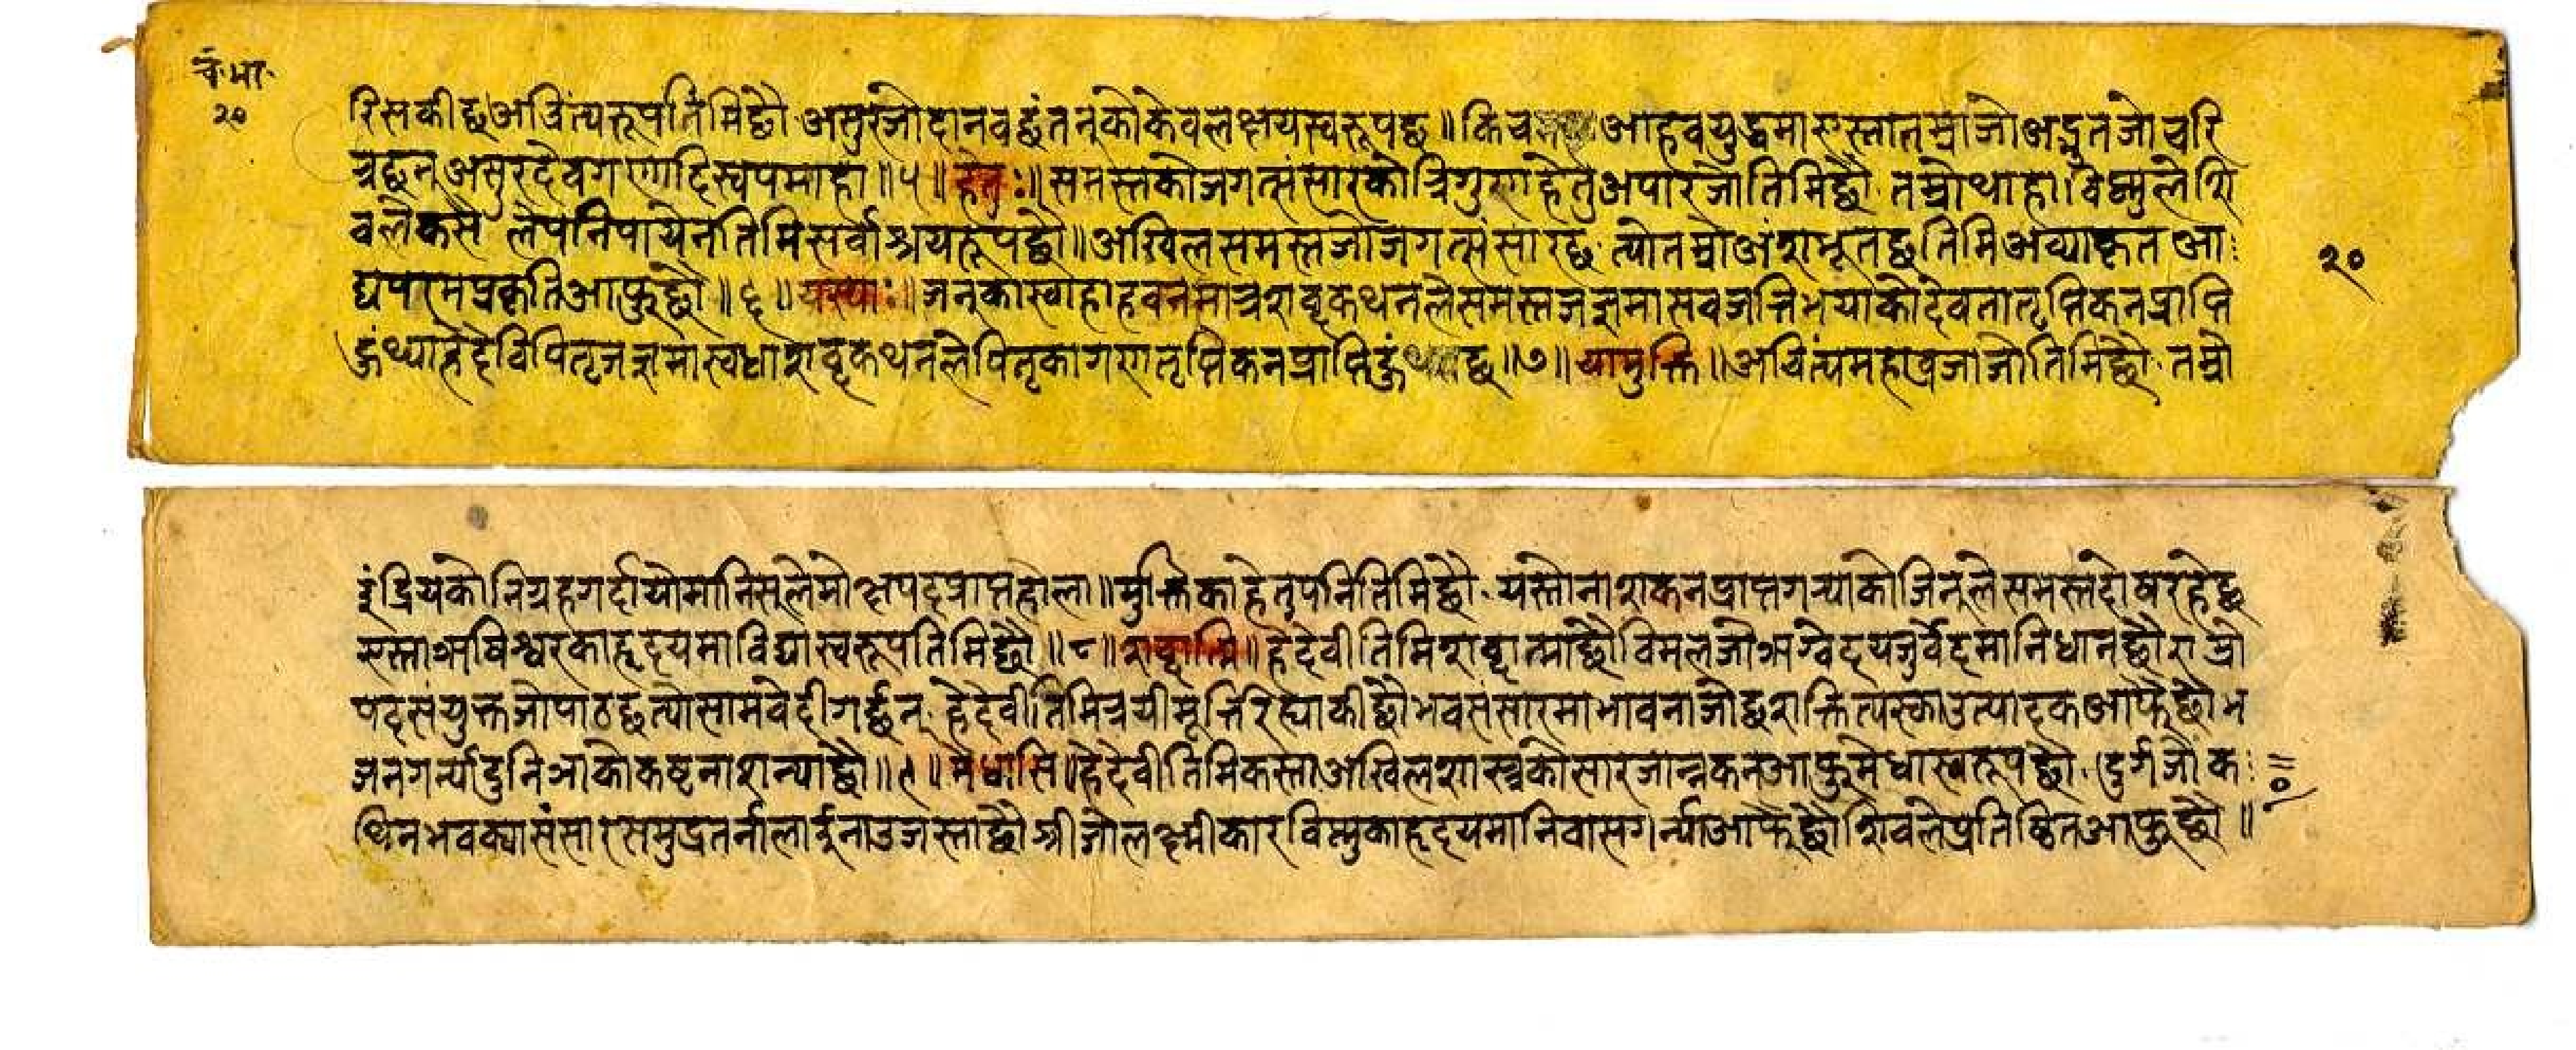 चं.भा.
२०
रिसकीछ अचिंत्यरूप तिमिछौ असुरजो दानव छंतनको केवल क्षयस्वरूप छ ॥ किंच आहव युद्धमा एस्ता तम्रा जो अद्भुत जो चरि
त्र छन् असुरदेवगणादिस्वपमाहा ॥५॥ हेतुः॥ समस्तको जगत्संसारको त्रिगुण हेतु अपार जो तिमिछौ तम्रो थाहा वैष्णुले शि
वले कसै ले पनि पायेन तिमि सर्वाश्रयरूप छौ ॥ अखिल समस्त जो जगत्संसार छ त्यो तम्रो अंशभूत छ तिमि अव्याकृत आ
२०
द्य परम प्रकृति आफु छौ ॥६॥ यस्याः॥ जनुका स्वाहा हवनमात्र शब्द कथनले समस्त जज्ञमा सव जज्ञि भयाको देवता तृप्तिकन प्राप्ति
हुंथ्या हे देवि पितृजज्ञमा स्वधा शब्द कथनले पितृका गण तृप्तिकन प्राप्ति छ ॥७॥ यामुक्ति ॥ अचिंत्य महाव्रजा जो तिमिछौ तम्रो
इंद्रियको निग्रह गर्दा यो मानिसले मोक्षपद प्राप्त होला ॥ मुक्तिका हेतु पनि तिमिछौ यस्तो नाशकन प्राप्त गर्‍याको जिनुले समस्त दोष रहेछ
एस्ता ऋषिश्वरका हृदयमा विद्यास्वरूप तिमिछौ ॥८॥ शब्दात्मि ॥ हे देवी तिमि शब्दात्मा छौ विमल जो ऋग्वेद यजुर्वेदमा निधान छौ राम्रो
पदसंयुक्त जो पाठ छ त्यो सामवेदी गर्छन् हे देवी तिमि त्रयी मूर्त्ति रिह्याकी छौ भवसंसारमा भावना जो छ शक्ति त्यस्का उत्पादक आफै छौ भ
जन गर्न्या दुनिञाको कष्ट नाशन्या छौ ॥९॥ मेधासि ॥ हे देवी तिमि कस्ता अखिलशास्त्रको सार जान्नकन आफु मेधास्वरूप छौ दुर्ग जो क
ठिन भव क्या संसारसमुद्र तर्नालाई नाउ जस्ता छौ श्री जो लक्ष्मीकार विष्णुका हृदयमा निवास गर्न्या आफै छौ शिवले प्रतिष्ठित आफु छौ ॥